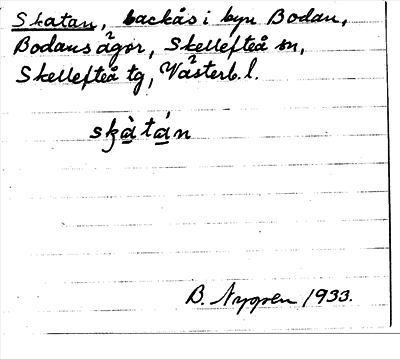 Skatan, backås i byn Bodan,
Bodans ägor, Skellefteå sn,
Skellefteå tg, Västerb. l.
skàtán
B. Nygren 1933.